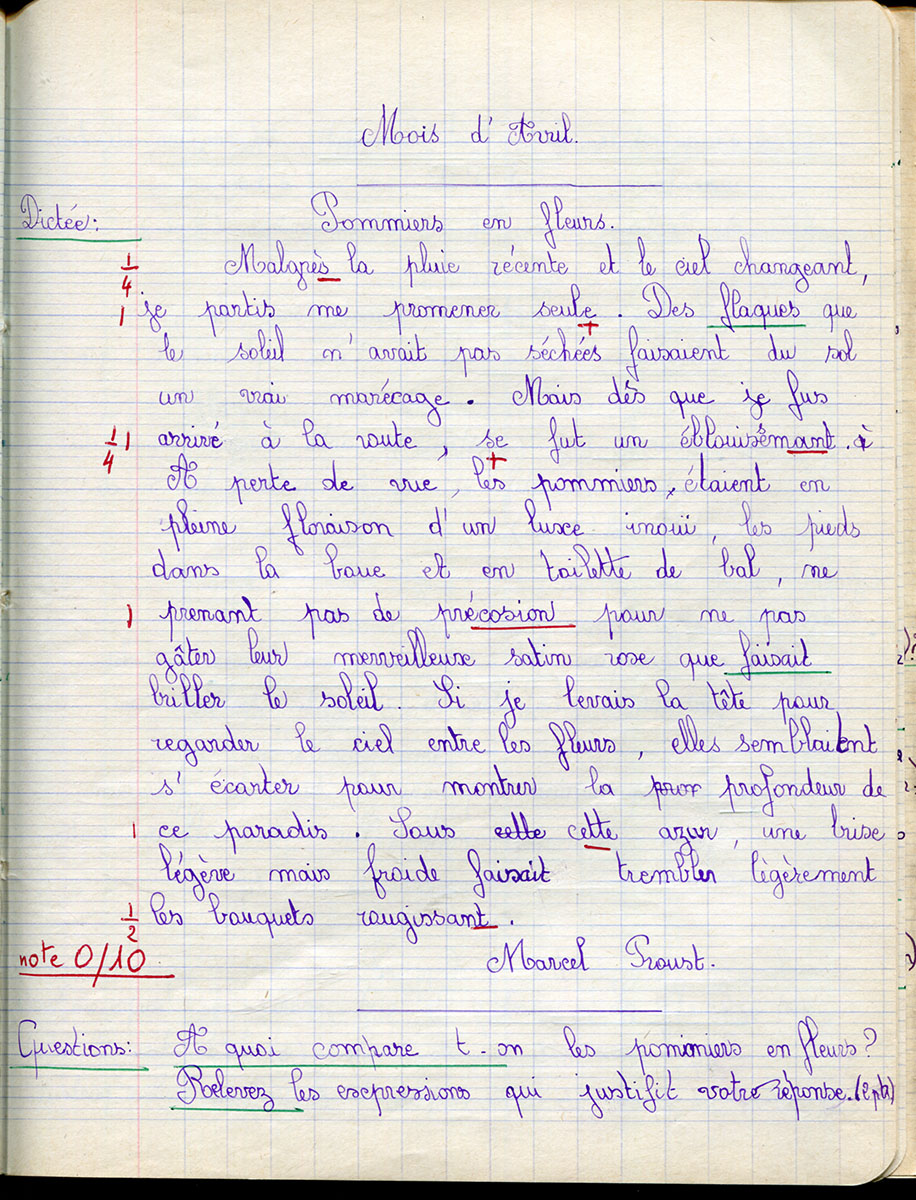 Mois d'Avril.
Dictée: Pommiers en fleurs.
1/4 Malgrès la pluie récente et le ciel changeant,
1 je partis me promener seule. Des flaques que
le soleil n'avait pas séchées faisaient du sol
un vrai marécage. Mais dès que je fus
1/4 1 arrivé à la route, se fut un éblouisêmant.
A perte de vue, les pommiers, étaient en
pleine floraison d'un luxe inouï, les pieds
dans la boue et en toilette de bal, ne
1 prenant pas de précosion pour ne pas
gâter leur merveilleuse satin rose que faisait
briller le soleil. Si je levais la tête pour
regarder le ciel entre les fleurs, elles semblaient
s'écarter pour montrer la pror profondeur de
1 ce paradis. Sous cette cette azur, une brise
légère mais froide faisait trembler légèrement
1/2 les bouquets rougissant.
note 0/10 Marcel Proust.
Questions: A quoi compare t-on les pommiers en fleurs?
Relevez les expressions qui justifit votre réponse. (2 pts)